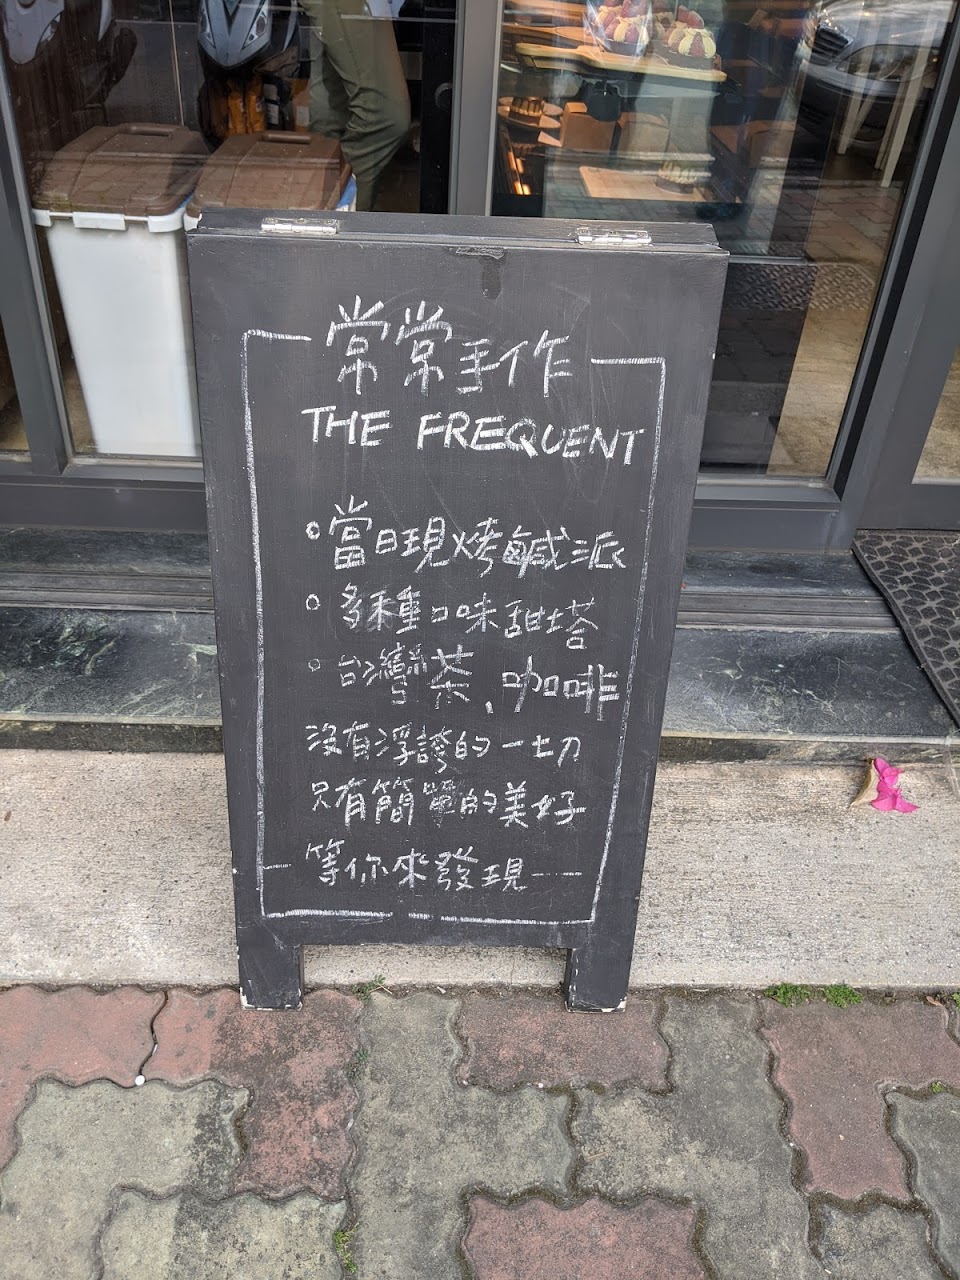 常常手作
THE FREQUENT
。當日現烤鹹派
。多種口味甜塔
。台灣茶、咖啡
沒有浮誇的一切
只有簡單的美好
等你來發現——